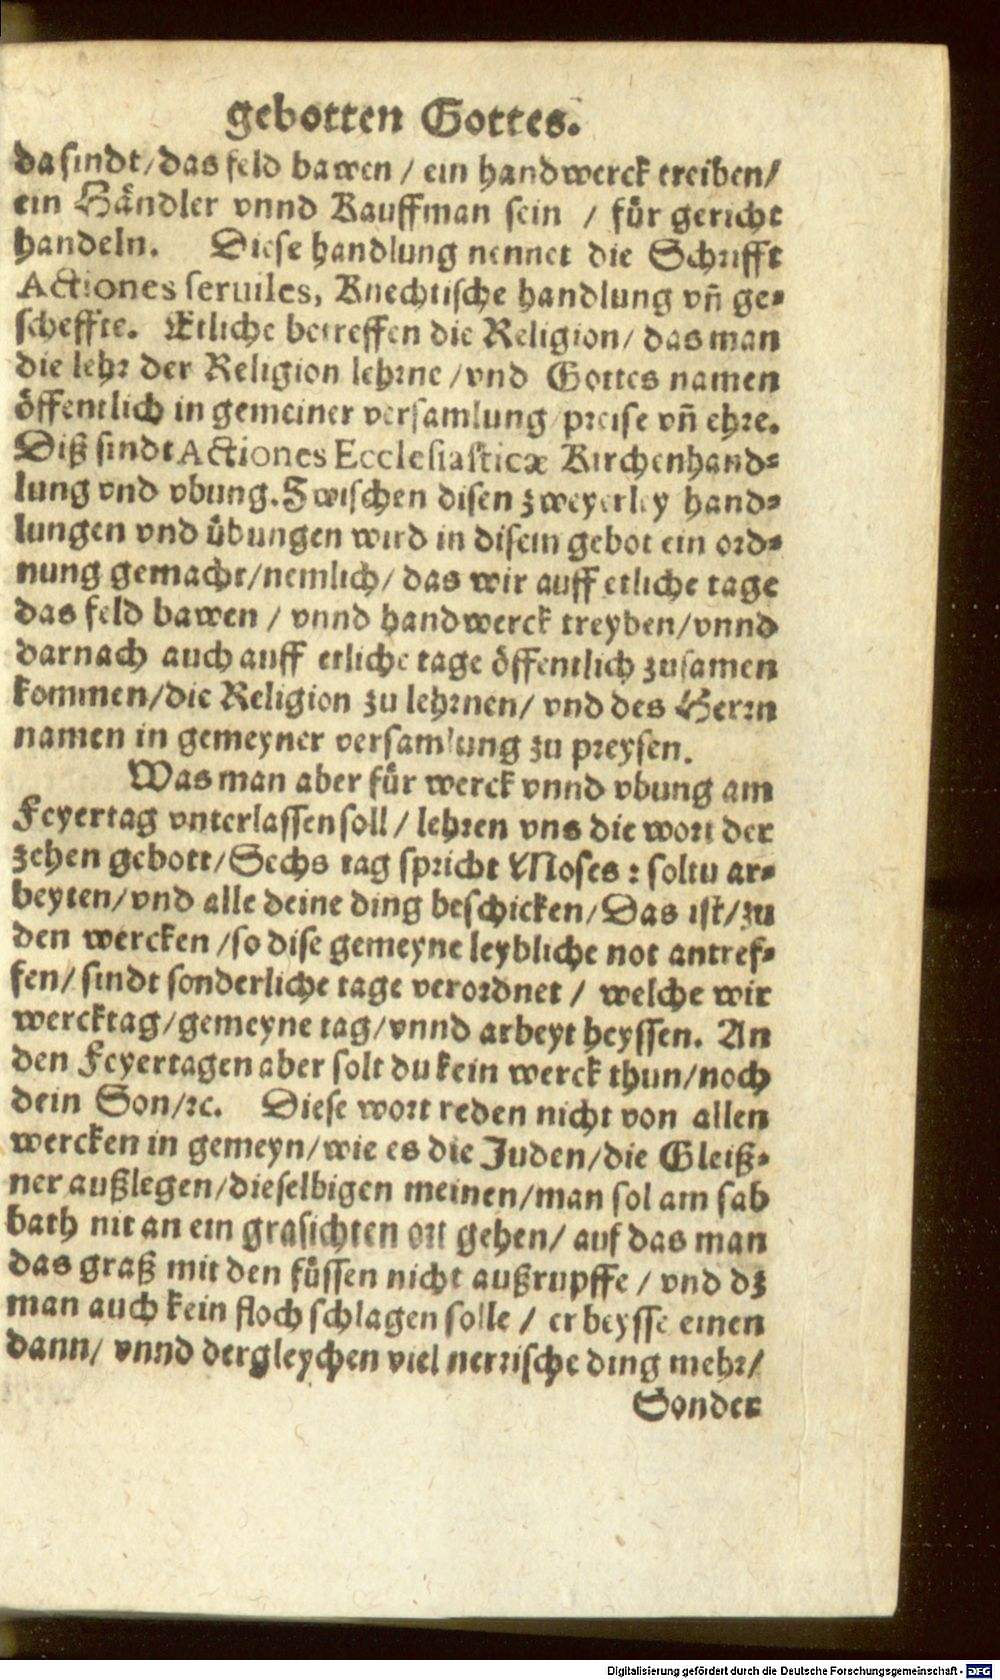 gebotten Gottes.
da sindt/das feld bawen / ein handwerck treiben/
ein Händler vnnd Kauffman sein / für gericht
handeln. Diese handlung nennet die Schrifft
Actiones seruiles, Knechtische handlung vñ ge-
scheffte. Etliche betreffen die Religion/ das man
die lehr der Religion lehrne /vnd Gottes namen
öffentlich in gemeiner versamlung preise vñ ehre.
Diß sindt Actiones Ecclesiasticæ Kirchenhand-
lung vnd vbung. Zwischen disen zweyerley hand-
lungen vnd übungen wird in disem gebot ein ord-
nung gemacht/nemlich/ das wir auff etliche tage
das feld bawen / vnnd handwerck treyben/vnnd
darnach auch auff etliche tage öffentlich zusamen
kommen/die Religion zu lehrnen/ vnd des Herrn
namen in gemeyner versamlung zu preysen.
Was man aber für werck vnnd vbung am
Feyertag vnterlassen soll / lehren vns die wort der
zehen gebott/Sechs tag spricht Moses : soltu ar-
beyten/vnd alle deine ding beschicken/Das ist/zu
den wercken /so dise gemeyne leybliche not antref-
fen/ sindt sonderliche tage verordnet / welche wir
wercktag/gemeyne tag/vnnd arbeyt heyssen. An
den Feyertagen aber solt du kein werck thun/noch
dein Son/ꝛc. Diese wort reden nicht von allen
wercken in gemeyn/wie es die Juden/die Gleiß-
ner außlegen/dieselbigen meinen/man sol am sab
bath nit an ein grasichten ort gehen/ auf das man
das graß mit den füssen nicht außrupffe / vnd dz
man auch kein floch schlagen solle / er beysse einen
dann/ vnnd dergleychen viel nerrische ding mehr/
Sonder
Digitalisierung gefördert durch die Deutsche Forschungsgemeinschaft - DFG